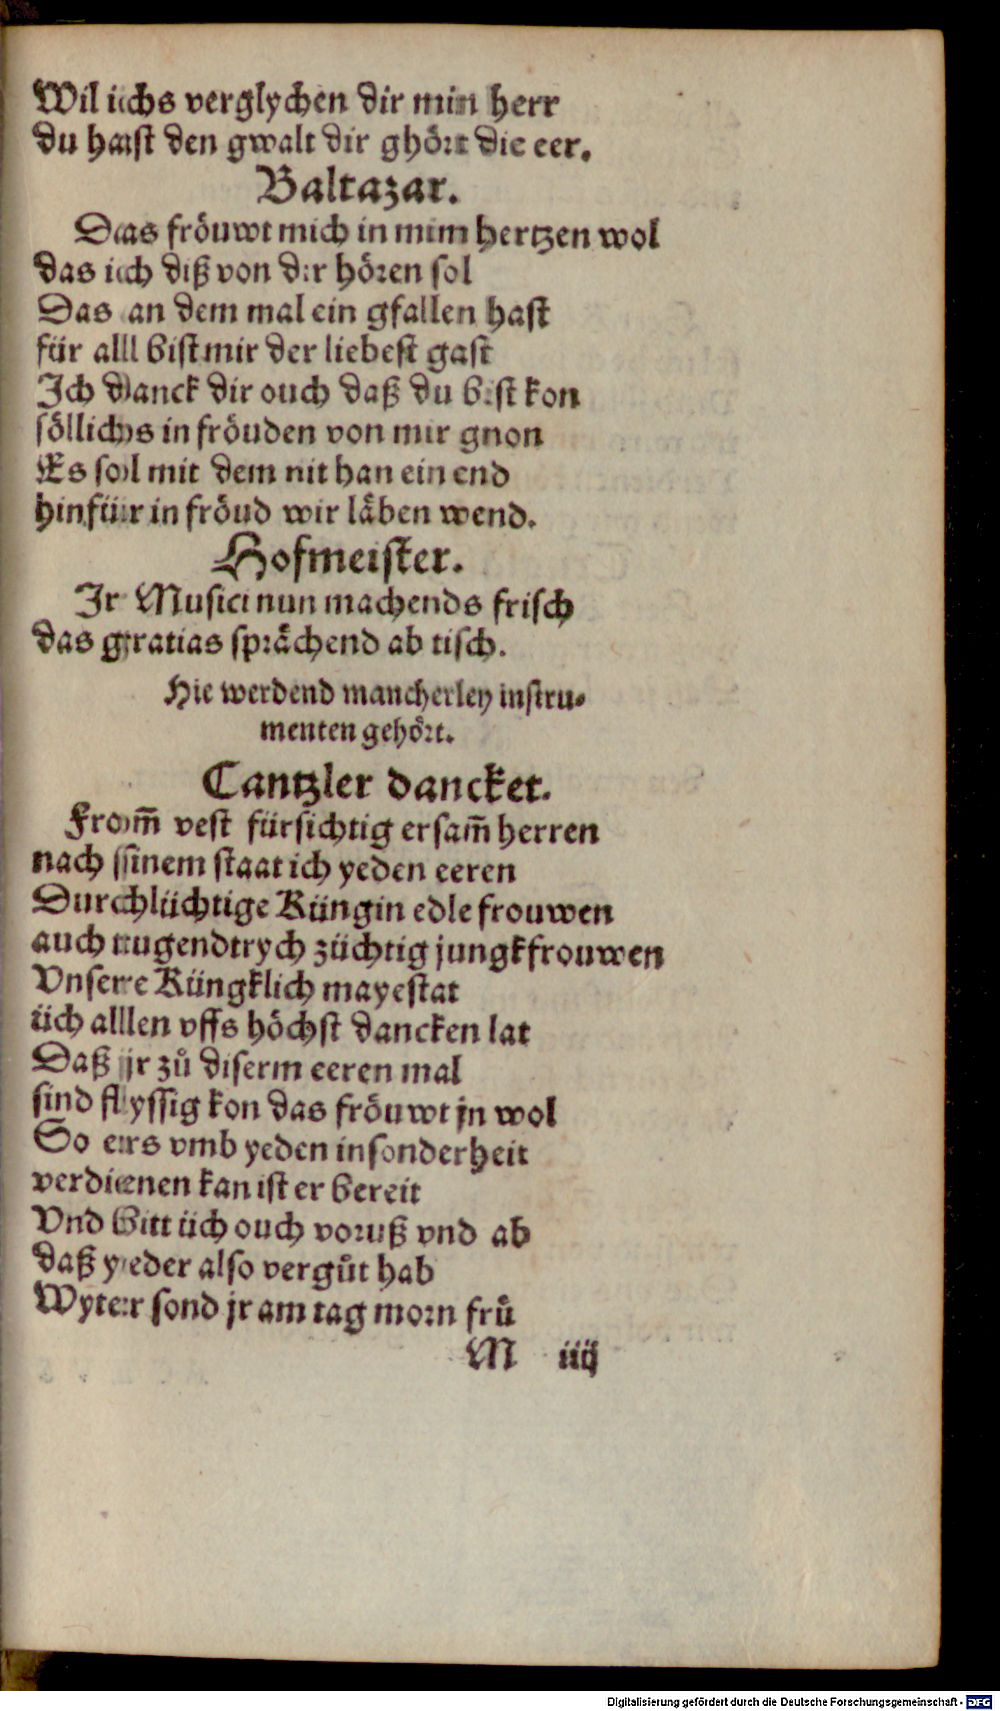 Wil ichs verglychen dir min herr
du hast den gwalt dir ghört die eer.
Baltazar.
Das fröuwt mich in mim hertzen wol
das ich diß von dir hören sol
Das an dem mal ein gfallen hast
für all bist mir der liebest gast
Ich danck dir ouch daß du bist kon
söllichs in fröuden von mir gnon
Es sol mit dem nit han ein end
hinfür in fröud wir läben wend.
Hofmeister.
Ir Musici nun machends frisch
das gratias sprächend ab tisch.
Hie werdend mancherley instru⸗
menten gehört.
Cantzler dancket.
From̄ vest fürsichtig ersam̄ herren
nach sinem staat ich yeden eeren
Durchlüchtige Küngin edle frouwen
auch tugendtrych züchtig jungkfrouwen
Vnsere Küngklich mayestat
üch allen vffs höchst dancken lat
Daß jr zů diserm eeren mal
sind flyssig kon das fröuwt jn wol
So ers vmb yeden insonderheit
verdienen kan ist er bereit
Vnd bitt üch ouch voruß vnd ab
daß yeder also vergůt hab
Wyter sond jr am tag morn frů
M iiij
Digitalisierung gefördert durch die Deutsche Forschungsgemeinschaft - DFG